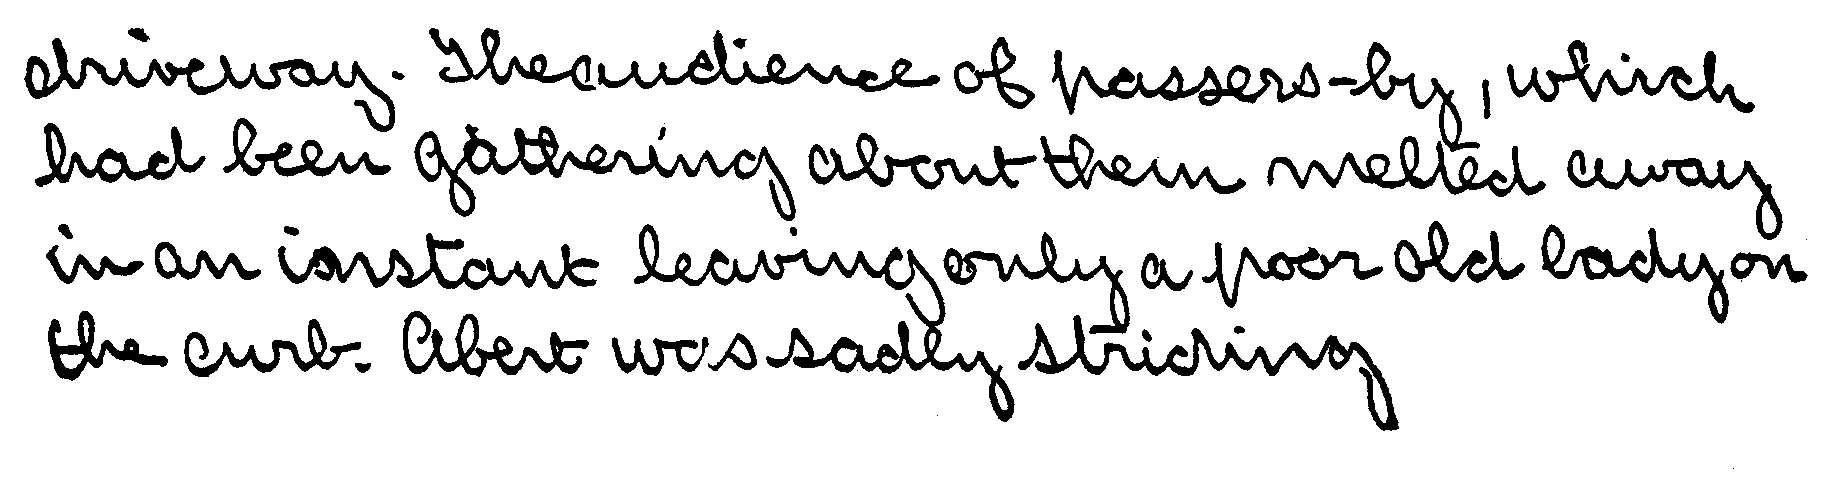 driveway. The audience of passers-by, which
had been gathering about them melted away
in an instant leaving only a poor old lady on
the curb. Abert was sadly striding